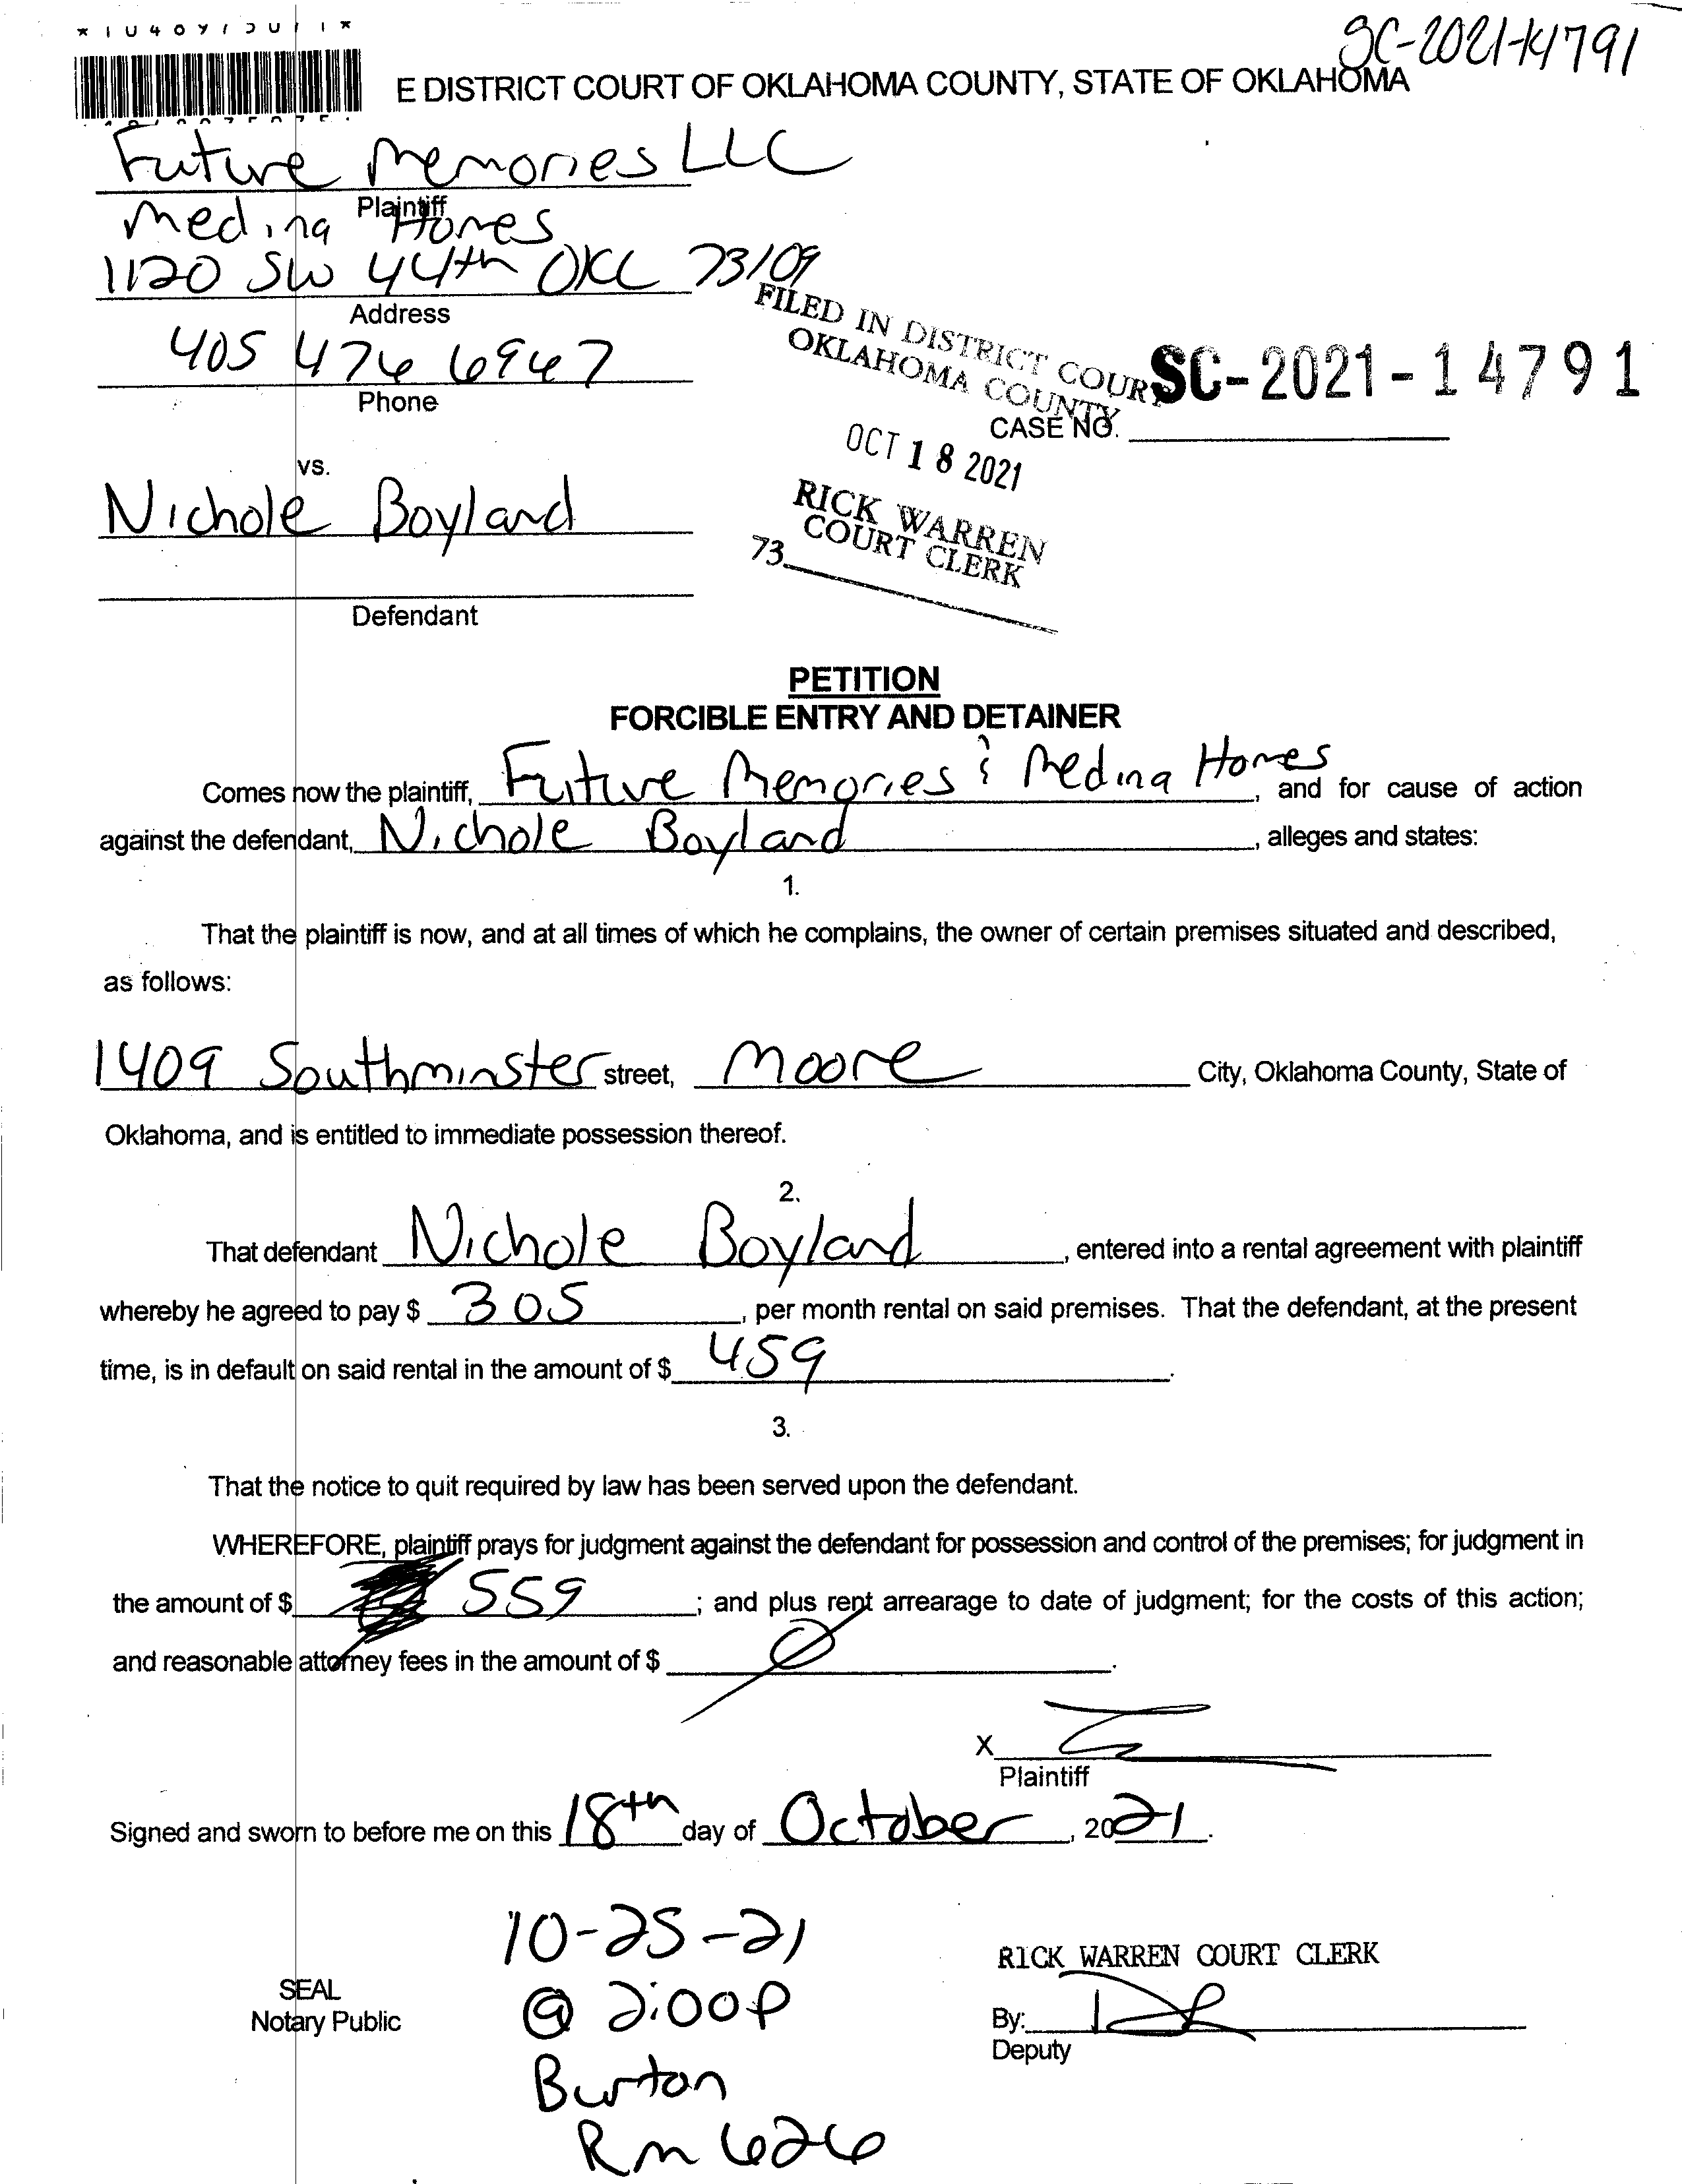 SC-2021-14791
E DISTRICT COURT OF OKLAHOMA COUNTY, STATE OF OKLAHOMA
Future Memories LLC
Plaintiff
Medina Homes
1120 SW 44th OKC 73109
Address
405 476 6947
Phone
FILED IN DISTRICT COURT
OKLAHOMA COUNTY
SC-2021-14791
CASE NO.
OCT 18 2021
RICK WARREN
COURT CLERK
73
vs.
Nichole Boyland
Defendant
PETITION
FORCIBLE ENTRY AND DETAINER
Comes now the plaintiff, Future Memories & Medina Homes, and for cause of action
against the defendant, Nichole Boyland, alleges and states:
1.
That the plaintiff is now, and at all times of which he complains, the owner of certain premises situated and described,
as follows:
1409 Southminster street, Moore City, Oklahoma County, State of
Oklahoma, and is entitled to immediate possession thereof.
2.
That defendant Nichole Boyland, entered into a rental agreement with plaintiff
whereby he agreed to pay $ 305, per month rental on said premises. That the defendant, at the present
time, is in default on said rental in the amount of $ 459.
3.
That the notice to quit required by law has been served upon the defendant.
WHEREFORE, plaintiff prays for judgment against the defendant for possession and control of the premises; for judgment in
the amount of $ 559; and plus rent arrearage to date of judgment; for the costs of this action;
and reasonable attorney fees in the amount of $ 0.
X
Plaintiff
Signed and sworn to before me on this 18th day of October, 2021.
10-25-21
@ 2:00P
Burton
Rm 626
SEAL
Notary Public
RICK WARREN COURT CLERK
By:
Deputy